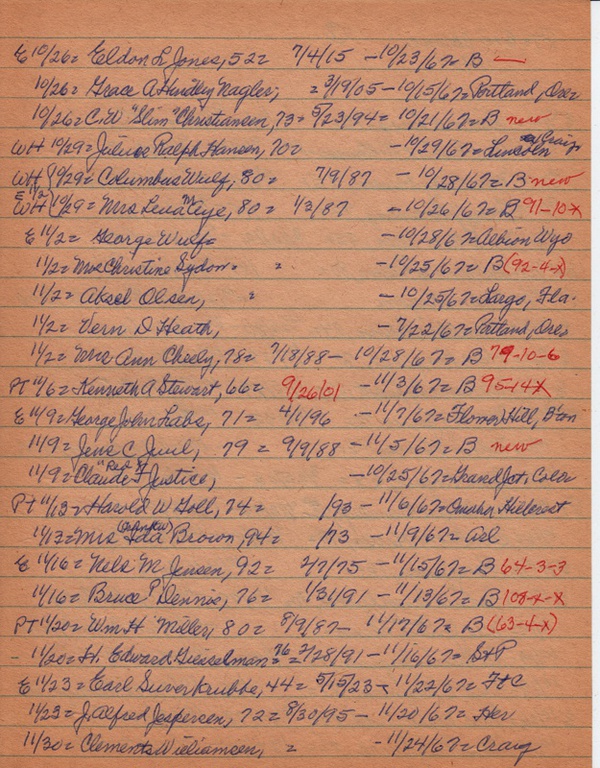 E 10/26= Eldon L Jones, 52= 7/4/15 - 10/23/67= B
10/26= Grace A Hindley Nagler, = 3/9/05 - 10/15/67= Portland, Ore
10/26= C.W "Slim" Christiansen, 73= 5/23/94= 10/21/67= B new
WH 10/29= Julius Ralph Hansen, 70= - 10/29/67= Lincoln Craig
WH 10/29= Columbus Wulf, 80= 7/9/87 - 10/28/67= B new
E 11/2 WH 10/29= Mrs Lena M Aye, 80= 1/3/87 - 10/26/67= B 91-10-x
E 11/2= George Wulf= - 10/28/67= Albion Wyo
11/2= Mrs Christine Sydon= = - 10/25/67= B (92-4-x)
11/2= Absel Olsen, = - 10/25/67= Largo, Fla-
11/2= Vern D Heath, - 7/22/67= Portland, Ores
11/2= Mrs Ann Cheely, 78= 7/18/88 - 10/28/67= B 79-10-6
PT 11/6= Kenneth A Stewart, 66= 9/26/01 - 11/3/67= B 95-14x
E 11/9= George John Labs, 71= 4/1/96 - 11/7/67= Hill, B'ton
11/9= Jens C Juul, 79= 9/9/88 - 11/5/67= B new
11/9= Claude "Red" F Justice, - 10/25/67= Grand Jct, Color
PT 11/13= Harold W Goll, 74= /93 - 11/6/67= Omaha Hillcrest
11/13= Mrs Ida Brown, 94= /73 - 11/9/67= Arl
E 11/16= Nels M Jensen, 92= 2/7/75 - 11/15/67= B 64-3-3
11/16= Bruce P Dennis, 76= 1/31/91 - 11/13/67= B 108-x-x
PT 11/20= Wm H Miller, 80= 8/9/87 - 11/17/67= B (63-4-x)
- 11/20= H. Edward Gieselman= 76= 2/28/91 - 11/16/67= S+P
E 11/23= Earl Suverkrubbe, 44= 5/15/23 - 11/22/67= F+C
11/23= J, Alfred Jespersen, 72= 8/30/95 - 11/20/67= Her
11/30= Clements Williamsen, = - 11/24/67= Craig